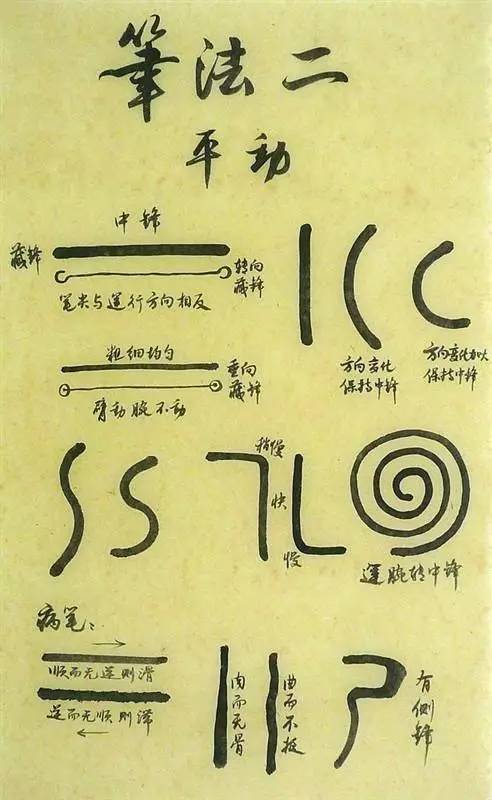 筆法二
平動
中鋒
藏鋒
转向
藏鋒
笔尖与運行方向相反
粗细均匀
垂向
藏鋒
臂动腕不动
方向变化
保持中鋒
方向变化加大
保持中鋒
稍慢
快
慢
運腕转中鋒
病笔:
顺而无逆则滑
逆而无顺则滞
肉而无骨
曲而不挺
有侧鋒